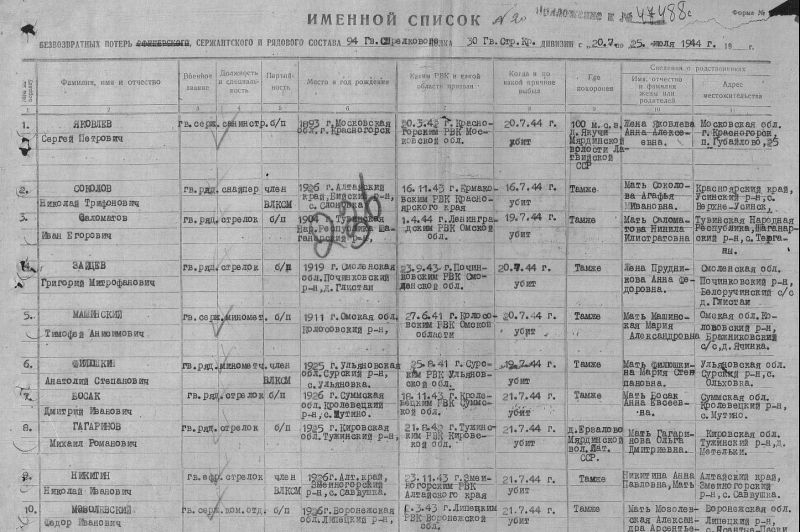 ИМЕННОЙ СПИСОК
47488с
Форма №
БЕЗВОЗВРАТНЫХ ПОТЕРЬ ОФИЦЕРСКОГО, СЕРЖАНТСКОГО И РЯДОВОГО СОСТАВА 94 Гв.Стрелкового 30 Гв.Стр.Кр. ДИВИЗИИ с 20.7. по 25. июля 1944 г.
Фамилия, имя и отчество
Военное звание
Должность и специальность
Партийность
Место и год рождения
Каким РВК и какой области призван
Когда и по какой причине выбыл
Где похоронен
Сведения о родственниках
Имя, отчество и фамилия жены или родителей
Адрес местожительства
1. ЯКОВЛЕВ Сергей Петрович
гв.серж. санинстр. б/п
1893 г.Московская обл.г.Красногорск
20.3.42 г.Красногорским РВК Московской обл.
20.7.44 г. убит
100 м.с.в. д.Якучи Мярдинской волости Латвийской ССР
Жена Яковлева Анна Алексеевна.
Московская обл. г.Красногорск, п.Губайлово, 25
2. СОКОЛОВ Николай Трифонович
гв.ряд. снайпер член ВЛКСМ
1926 г.Алтайский край, Бийский р-н, с.
16.11.43 г.Ермаковским РВК Красноярского края
16.7.44 г. убит
Тамже
Мать Соколова Агафья Ивановна.
Красноярский край, Усинский р-н, с. Верхне-Усинск,
3. Саломатов Иван Егорович
гв.ряд. стрелок б/п
1904 Тувинская Нар.Республика
1.4.44 г.Ленинградским РВК Омской обл.
19.7.44 г. убит
Тамже
Мать Саломатова Нинила Илистратовна
Тувинская Народная Республика,
4. ЗАЙЦЕВ Григорий Митрофанович
гв.ряд. стрелок б/п
1919 г.Смоленская обл.Починковский р-н,д.Глистаи
23.9.43 г.Починковским РВК Смоленской обл.
20.7.44 г. убит
Тамже
Жена Прудникова Анна Федоровна.
Смоленская обл. Починковский р-н, Белоручинский с/с д.Глистаи
5. МАШИНСКИЙ Тимофей Анисимович
гв.серж. миномет. б/п
1911 г.Омская обл. Колосовский р-н,
27.6.41 г.Колосовским РВК Омской области
20.7.44 г. убит
Тамже
Мать Машинская Мария Александровна
Омская обл. Колосовский р-н, Бражниковский с/с,д.Ячинка.
6. ФИЛЮШКИН Анатолий Степанович
гв.ряд. минометч. член ВЛКСМ
1925 г.Ульяновская обл.Сурский р-н, с.Ульяновка.
25.8.41 г.Сурским РВК Ульяновской обл.
19.7.44 г. убит
Тамже
Мать Филюшкина Мария Степановна.
Ульяновская обл. Сурский р-н,с. Ольховка.
7. БОСАК Дмитрий Иванович
гв.ряд. стрелок б/п
1926 г.Суммская обл. Кролевецкий р-н, с.Мутино.
18.11.43 г.Кролевецким РВК Суммской обл.
21.7.44 г. убит
Тамже
Мать Босак Анна Евсеевна.
Суммская обл. Кролевецкий р-н, с.Мутино.
8. ГАГАРИНОВ Михаил Романович
гв.ряд. стрелок б/п
1925 г.Кировская обл.Тужинский р-н,
21.8.42 г.Тужинским РВК Кировской обл.
21.7.44 г. убит
Мярдинской вол.Лат. ССР.
Мать Гагаринова Ольга Дмитриевна.
Кировская обл. Тужинский р-н,д. Метельки.
9. НИКИТИН Николай Иванович
гв.ефр. стрелок член ВЛКСМ
1926г.Алт.край, Змеиногорский р-н,с.Саввушка.
23.11.43 г.Змеиногорским РВК Алтайского края
21.7.44 г. убит
Тамже
Никитина Анна Павловна, Мать
Алтайский край, Змеиногорский р-н,с.Саввушка.
10. Федор Иванович
гв.серж. ком.отд. б/п
1926г.Воронежская обл.Липецкий р-н,
г.Липецким РВК Воронежской обл.
21.7.44 г. убит
Тамже
Воронежская обл. Липецкий р-н,